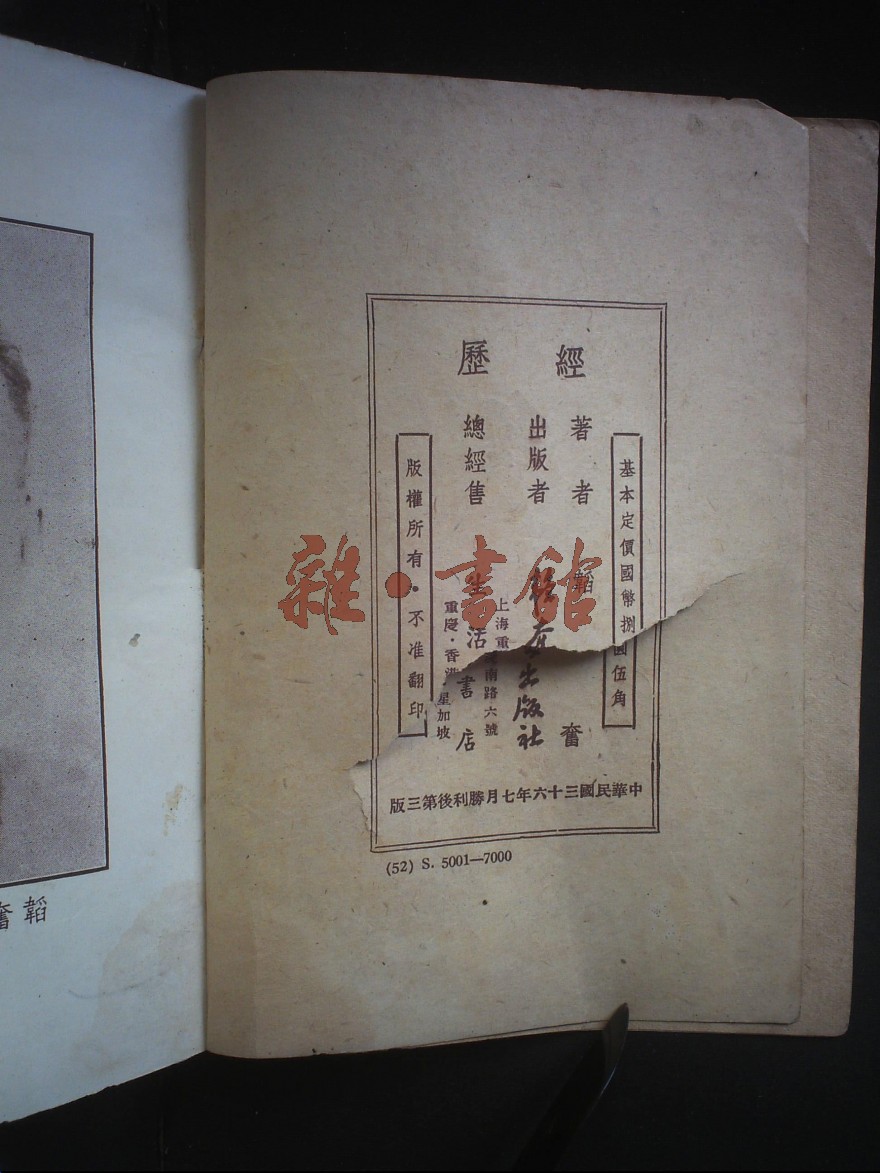 經歷
基本定價國幣捌圓伍角
著者 韜奮
出版者 韜奮出版社
總經售 生活書店
上海重慶南路六號
重慶・香港・星加坡
版權所有・不准翻印
中華民國三十六年七月勝利後第三版
(52) S. 5001—7000
韜奮
雜・書館